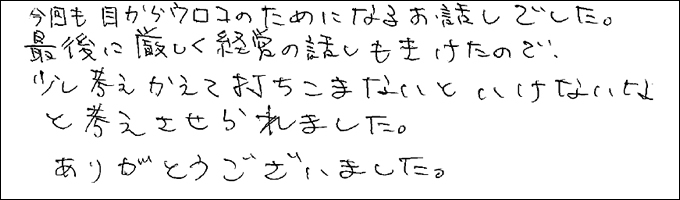 今回も目からウロコのためになるお話しでした。
最後に厳しく経営の話しもきけたので、
少し考えかえて打ちこまないといけないな
と考えさせられました。
ありがとうございました。